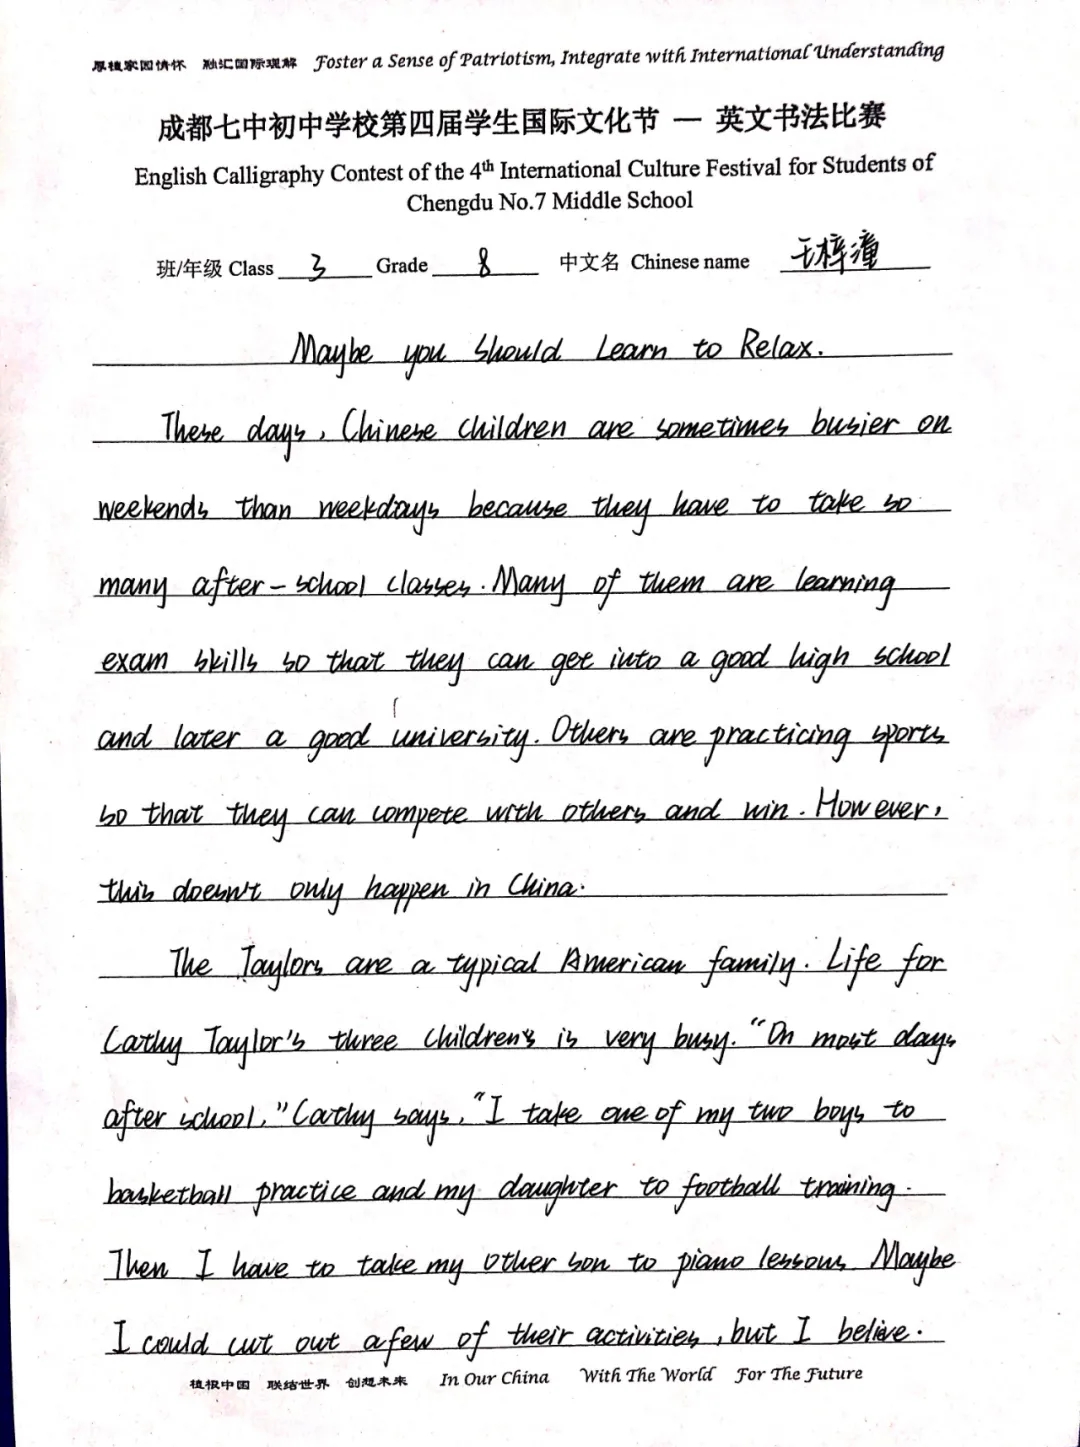 厚植家国情怀 融汇国际理解 Foster a Sense of Patriotism, Integrate with International Understanding
成都七中初中学校第四届学生国际文化节 — 英文书法比赛
English Calligraphy Contest of the 4th International Culture Festival for Students of
Chengdu No.7 Middle School
班/年级 Class 3 Grade 8 中文名 Chinese name 王梓潼
Maybe you should Learn to Relax.
These days, Chinese children are sometimes busier on
weekends than weekdays because they have to take so
many after-school classes. Many of them are learning
exam skills so that they can get into a good high school
and later a good university. Others are practicing sports
so that they can compete with others and win. However,
this doesn't only happen in China.
The Taylors are a typical American family. Life for
Cathy Taylor's three children's is very busy. "On most days
after school," Cathy says, "I take one of my two boys to
basketball practice and my daughter to football training.
Then I have to take my other son to piano lessons. Maybe
I could cut out a few of their activities, but I belive.
植根中国 联结世界 创想未来 In Our China With The World For The Future